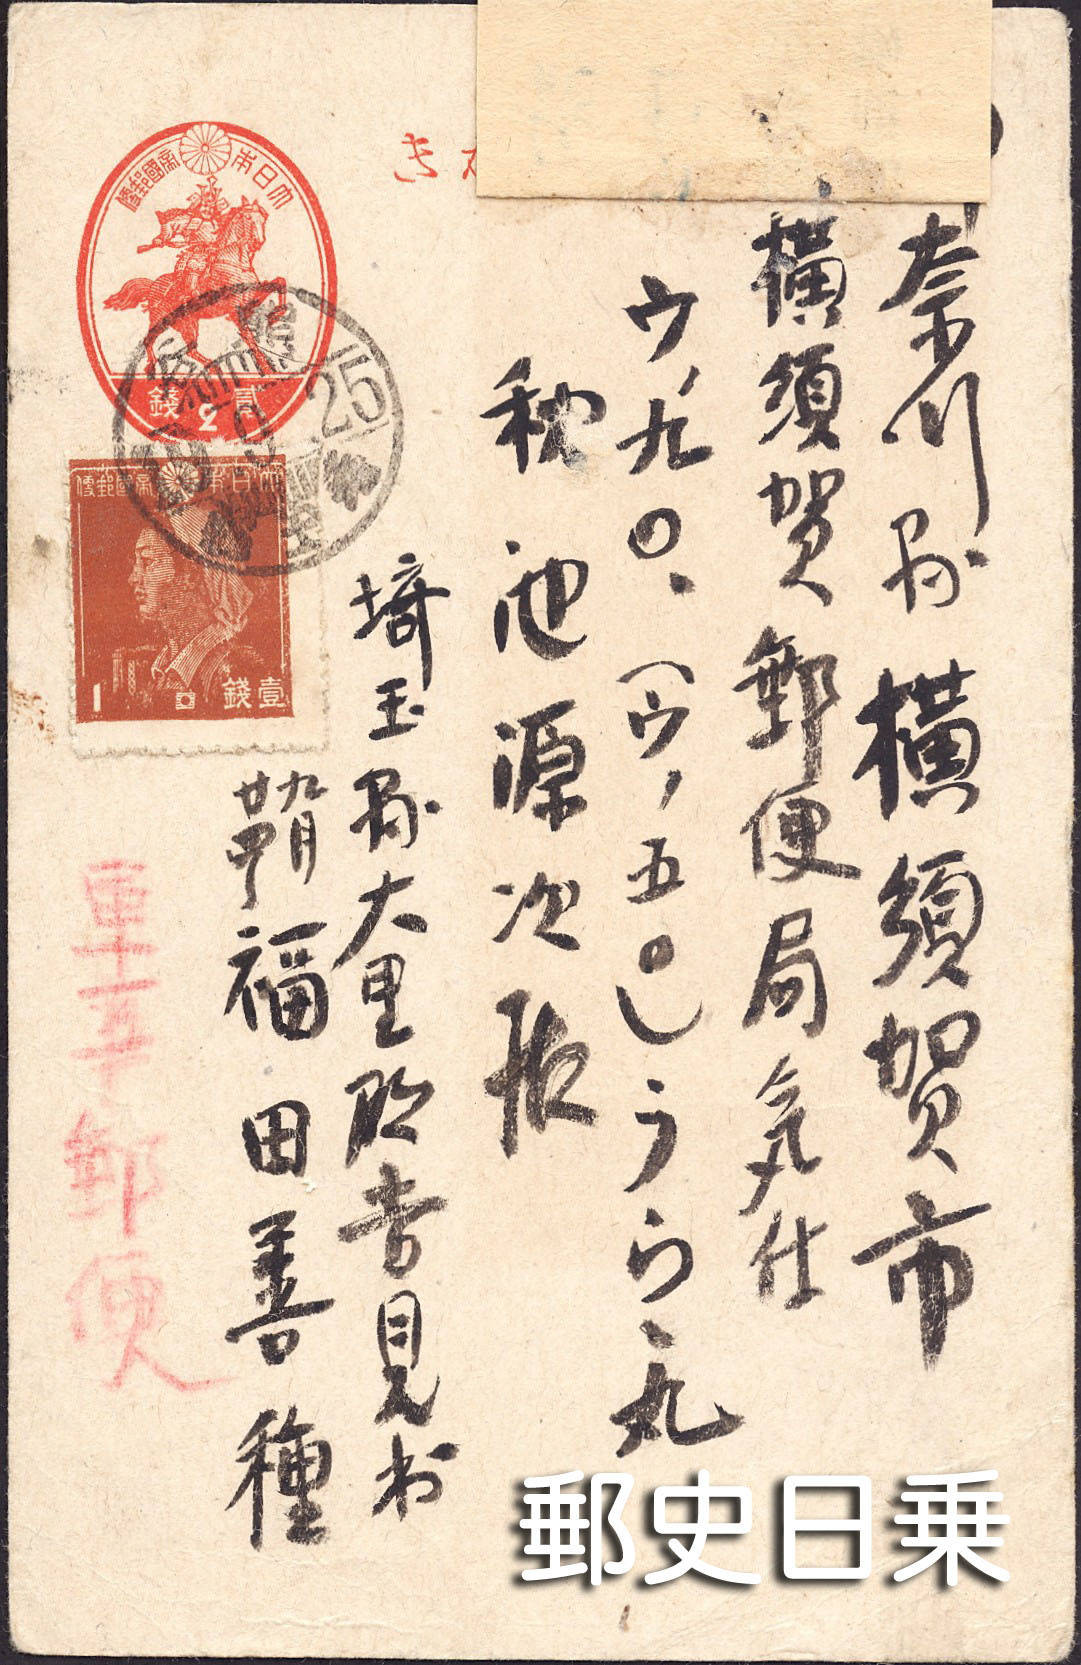 奈川県横須賀市
横須賀郵便局気付
ウ、九〇、(ウ、五〇)うら、丸
池源次殿
埼玉県大里郡吉見村
福田善種
軍事郵便
き
大日本帝國郵便
貳錢
2
大日本帝國郵便
1
壹錢
9
25
埼玉
郵史日乗